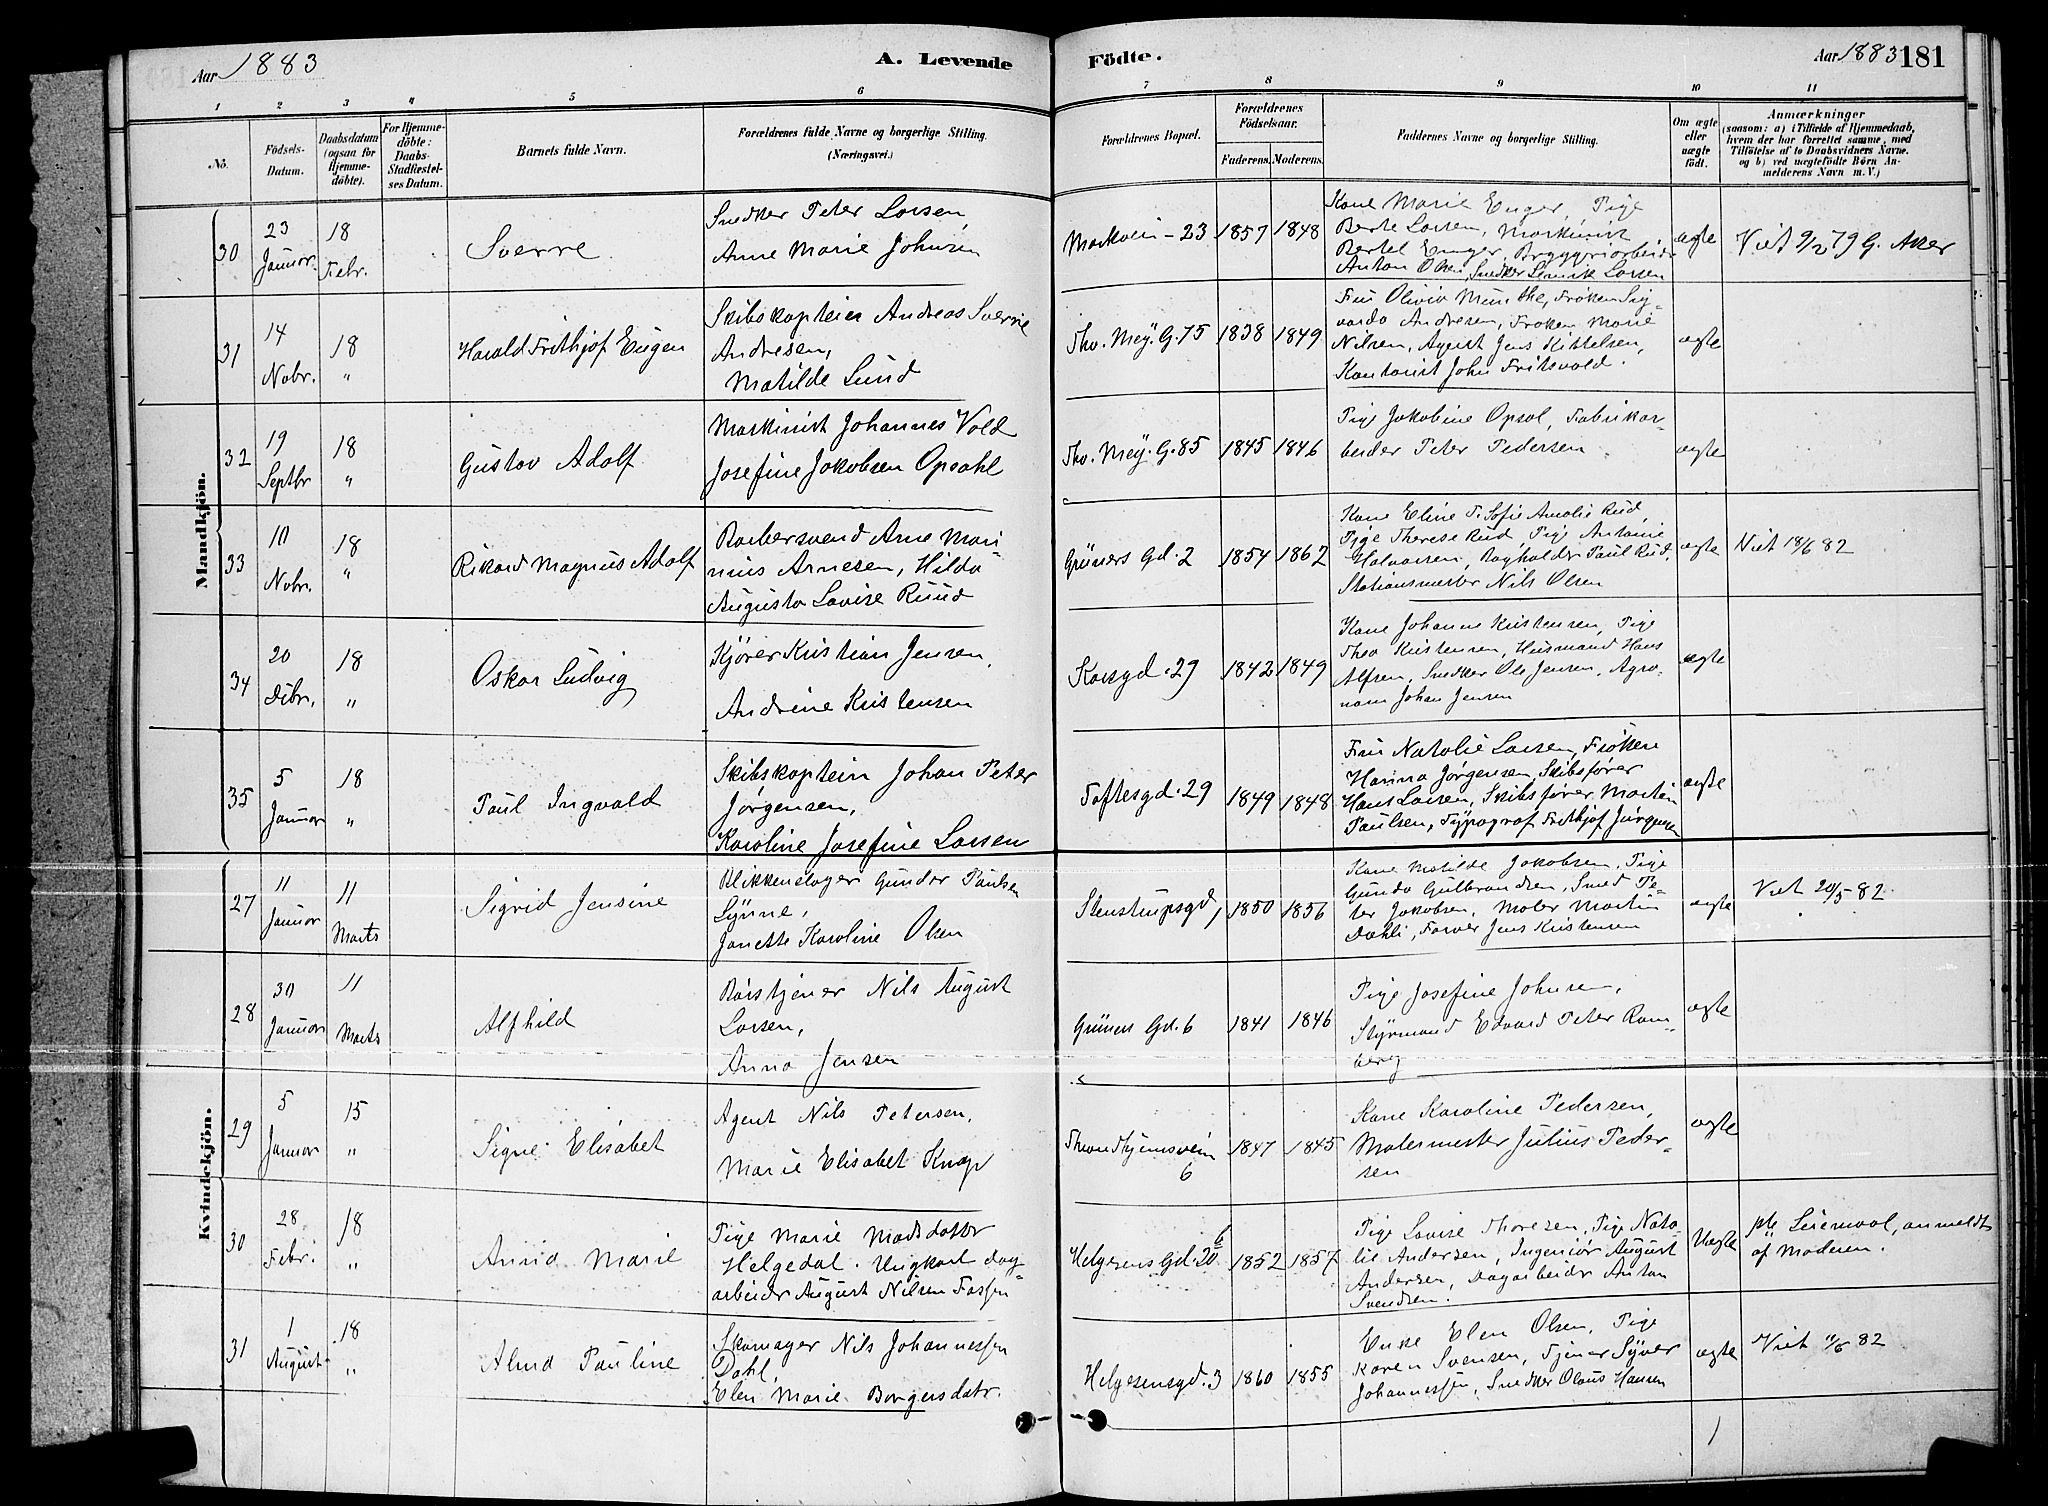 Aar 1883
A. Levende
Födte.
Aar 1883 181
1 2 3 4 5 6 7 8 9 10 11
No.
Födsels-
Datum.
Daabsdatum
(ogsaa for
Hjemme-
döbte).
For Hjemme-
döbte:
Daabs-
Stadfæstel-
ses Datum.
Barnets fulde Navn.
Forældrenes fulde Navne og borgerlige Stilling.
(Næringsvei.)
Forældrenes Bopæl.
Forældrenes
Födselsaar.
Faderens.
Moderens.
Faddernes Navne og borgerlige Stilling.
Om ægte
eller
uægte
födt.
Anmærkninger
(saasom: a) i Tilfælde af Hjemmedaab,
hvem der har forrettet samme, med
Tilföielse af to Daabsvidners Navne.
og b) ved uægtefödte Börn An-
melderens Navn m. V.)
Mandkjön.
30
23
Januar.
18
Febr.
Sverre
Snedker Peter Larsen
Anne Marie Johnsen
Markvein - 23
1857 1848
Kone Marie Enger, Pige
Berte Larsen, Maskinist
Bertel Enger, Bryggeriarbeider
Anton Olsen, Snedker Larsen
ægte
Viet 9/2 79 G. Aker
31
14
Novbr.
18
"
Harald Frithjof Eugen
Skibskaptein Andreas Sverre
Andresen,
Matilde Lund
Thv. Mey. G. 75
1838 1849
Fru Olivia Munthe, Frøken Sig-
varda Andresen, Frøken Marie
Nilsen, Agent Jens Kittelsen,
Kontorist John Fritsvold.
ægte
32
19
Septbr
18
"
Gustav Adolf
Maskinist Johannes Vold
Josefine Jakobsen Opsahl
Thv. Mey. G. 85
1845 1846
Pige Jakobine Opsal, Fabrikar-
beider Peter Pedersen
ægte
33
10
Novbr.
18
"
Rikard Magnus Adolf
Barbersvend Arne Mari-
nius Arnesen, Hilda
Augusta Lovise Ruud
Grüners Gd. 2
1854 1862
Kone Eline T. Sofie Amalie Rud,
Pige Therese Rud, Pige Antonie
Halvorsen, Bogholder Paul Rud,
Stationsmester Nils Olsen
ægte
Viet 18/6 82
34
20
Debr.
18
"
Oskar Ludvig
Kjører Kristian Jensen,
Andrine Kristensen
Korsgd. 29
1842 1849
Kone Johanne Kristensen, Pige
Thea Kristensen, Husmand Hans
Alfsen, Snedker Ole Jensen, Agro-
nom Johan Jensen
ægte
35
5
Januar
18
"
Paul Ingvald
Skibskaptein Johan Peter
Jørgensen,
Karoline Josefine Larsen
Toftesgd. 29
1849 1848
Fru Natalie Larsen, Frøken
Hanna Jørgensen, Skibsfører
Hans Larsen, Skibsfører Martin
Paulsen, Typograf Frithjof Jørgensen
ægte
Kvindekjön.
27
11
Januar
11
Marts
Sigrid Jensine
Blikkenslager Gunder Paulsen
Lynne,
Janette Karoline Olsen
Stenstrupsgd,
1850 1856
Kone Matilde Jakobsen, Pige
Gunda Gulbrandsen, Smed Pe-
ter Jakobsen, Maler Martin
Dæhli, Farver Jens Kristensen
ægte
Viet 20/5 82
28
30
Januar
11
Marts
Alfhild
Nils August
Larsen,
Anna Jensen
Grüners Gd. 6
1841 1846
Pige Josefine Johnsen,
Styrmand Edvard Peter Ram-
berg
ægte
29
5
Januar
15
"
Signe Elisabet
Agent Nils Petersen,
Marie Elisabet Knap
Throndhjemsvein
6
1847 1845
Kone Karoline Pedersen,
Malermester Julius Peder-
sen
ægte
30
28
Febr.
18
"
Anna Marie
Pige Marie Madsdatter
Helgedal. Ungkarl dag
arbeider August Nilsen Fossen-
Helgesens Gd. 20 b
1852 1857
Pige Lovise Thoresen, Pige Nata-
lie Andersen, Ingeniør August
Andersen, Dagarbeider Anton
Svendsen.
Uægte
Leiermaal, anmeldt
af Moderen.
31
1
August
18
"
Alma Pauline
Skomager Nils Johannessen
Dahl,
Elen Marie Borgersdatr.
Helgesensgd. 3
1860 1855
Enke Elen Olsen, Pige
Karen Svensen, Tjener Syver
Johannessen, Snedker Olaus Hansen
ægte
Viet 11/6 82